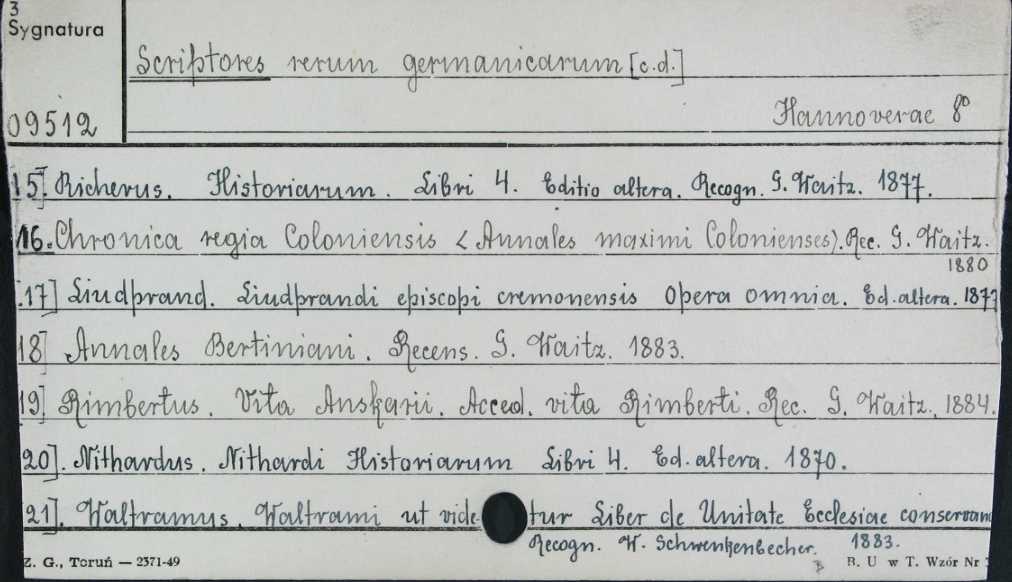 3
Sygnatura
Scriptores rerum germanicarum [c.d.]
09512
Hannoverae 8º
15]. Richerus. Historiarum. Libri 4. Editio altera. Recogn. G. Waitz. 1877.
16. Chronica regia Coloniensis < Annales maximi Colonienses). Rec. G. Waitz.
1880
[17] Liudprand. Liudprandi episcopi cremonensis Opera omnia. Ed. altera. 1877
18] Annales Bertiniani. Recens. G. Waitz. 1883.
19] Rimbertus. Vita Anskarii. Acced. vita Rimberti. Rec. G. Waitz. 1884.
20]. Nithardus. Nithardi Historiarum Libri 4. Ed. altera. 1870.
21]. Waltramus. Waltrami ut videtur Liber de Unitate Ecclesiae conservan
Recogn. W. Schwenkenbecher. 1883.
Z. G., Toruń — 2371-49
B. U w T. Wzór Nr